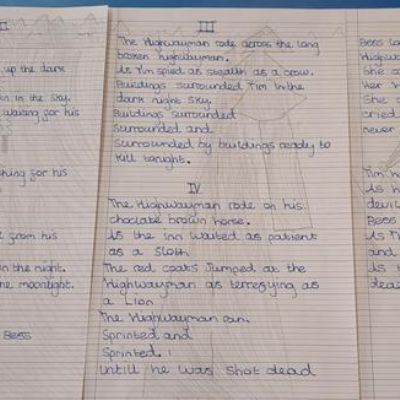 II
up the dark
in the sky.
waiting for his
for his
from his
in the night.
the moonlight.
Bess
III
The Highwayman rode across the long
broken highwayman.
As Tim spied as stealth as a crow.
Buildings surrounded Tim in the
dark night sky.
Buildings surrounded
Surrounded and
Surrounded by buildings ready to
kill tonight.
IV
The Highwayman rode on his
choclate brown horse.
As the inn waited as patient
as a sloth
The red coats jumped at the
Highwayman as terrefying as
a Lion
The Highwayman ran.
Sprinted and
Sprinted.
Untill he was shot dead
Bess
Highway
She
Her
She
cried
never
Tim
As h
devil
Bess
As T
and
As t
dead